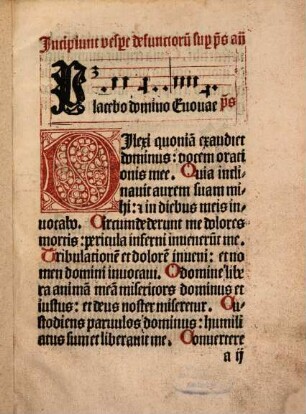 Incipiunt vespe defunctorū sup p̄s añ
Placebo domino Euouae p̄s
Dilexi quoniā exaudiet
dominus: vocem oraci
onis mee. Quia incli
nauit aurem suam mi
hi: ⁊ in diebus meis in
uocabo. Circumdederunt me dolores
mortis: pericula inferni inuenerūt me.
Tribulationē et dolorē inueni: et no
men domini inuocaui. O domine libe
ra animā meā misericors dominus et
iustus: et deus noster miseretur. Cu
stodiens paruulos dominus: humili
atus sum et liberauit me. Conuertere
a ij